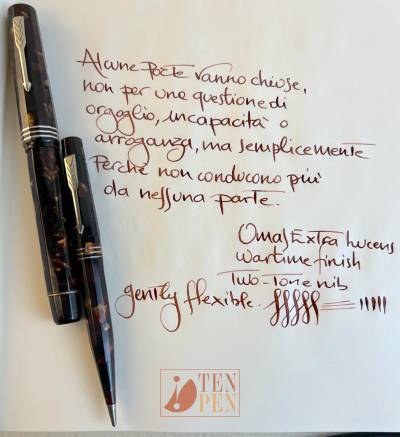 Alcune Porte vanno chiuse,
non per una questione di
orgoglio, incapacità o
arroganza, ma semplicemente
Perchè non conducono più
da nessuna parte.
Omas Extra Lucens
wartime finish
Two-Tone nib
gently flexible.
TEN
PEN